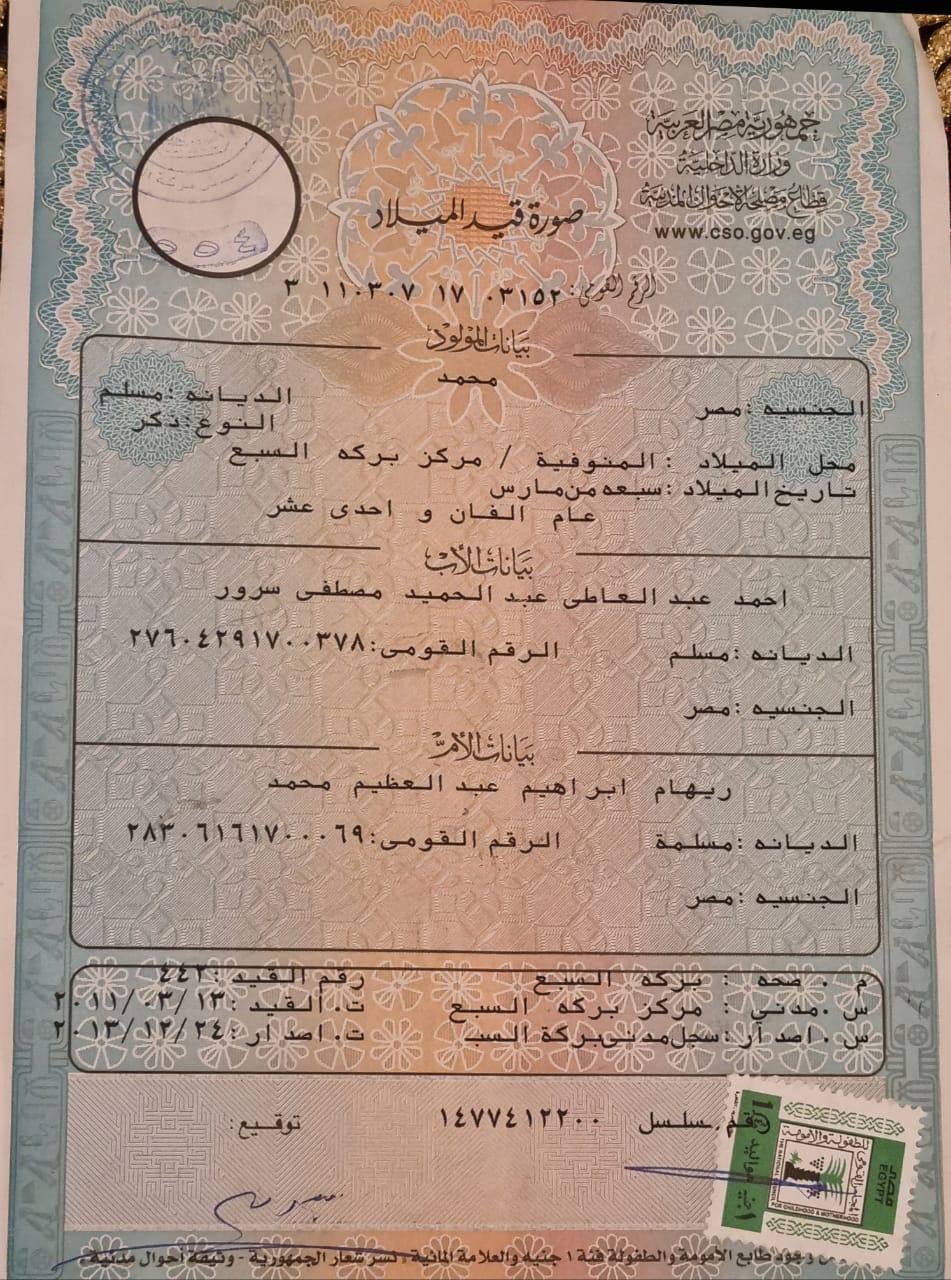 جمهورية مصر العربية
وزارة الداخلية
قطاع مصلحة الأحوال المدنية
www.cso.gov.eg
صورة قيد الميلاد
الرقم القومى: ٣ ١١٠٣٠٧ ١٧ ٠٣١٥٢
بيانات المولود
محمد
الجنسيه :مصر الديانه :مسلم
النوع :ذكر
محل الميلاد : المنوفية / مركز بركه السبع
تاريخ الميلاد :سبعه من مارس
عام الفان و احدى عشر
بيانات الأب
احمد عبد العاطى عبد الحميد مصطفى سرور
الديانه :مسلم الرقم القومى:٢٧٦٠٤٢٩١٧٠٠٣٧٨
الجنسيه :مصر
بيانات الأم
ريهام ابراهيم عبد العظيم محمد
الديانه :مسلمة الرقم القومى:٢٨٣٠٦١٦١٧٠٠٠٦٩
الجنسيه :مصر
م . صحه : بركه السبع رقم القيد :٤٤٢
س .مدني : مركز بركه السبع ت. القيد :٢٠١١/٠٣/١٣
س . اصدار :سجل مدنى بركة السب ت. اصدار :٢٠١٣/١٢/٢٤
رقم مسلسل ١٤٧٧٤١٢٢٠٠ توقيع:
مصر
EGYPT
للطفولة والأمومة
FOR CHILDHOOD & MOTHERHOOD
وجود طابع الأمومة والطفولة فئة ١ جنيه والعلامة المائية نسر شعار الجمهورية - وثيقة أحوال مدنية